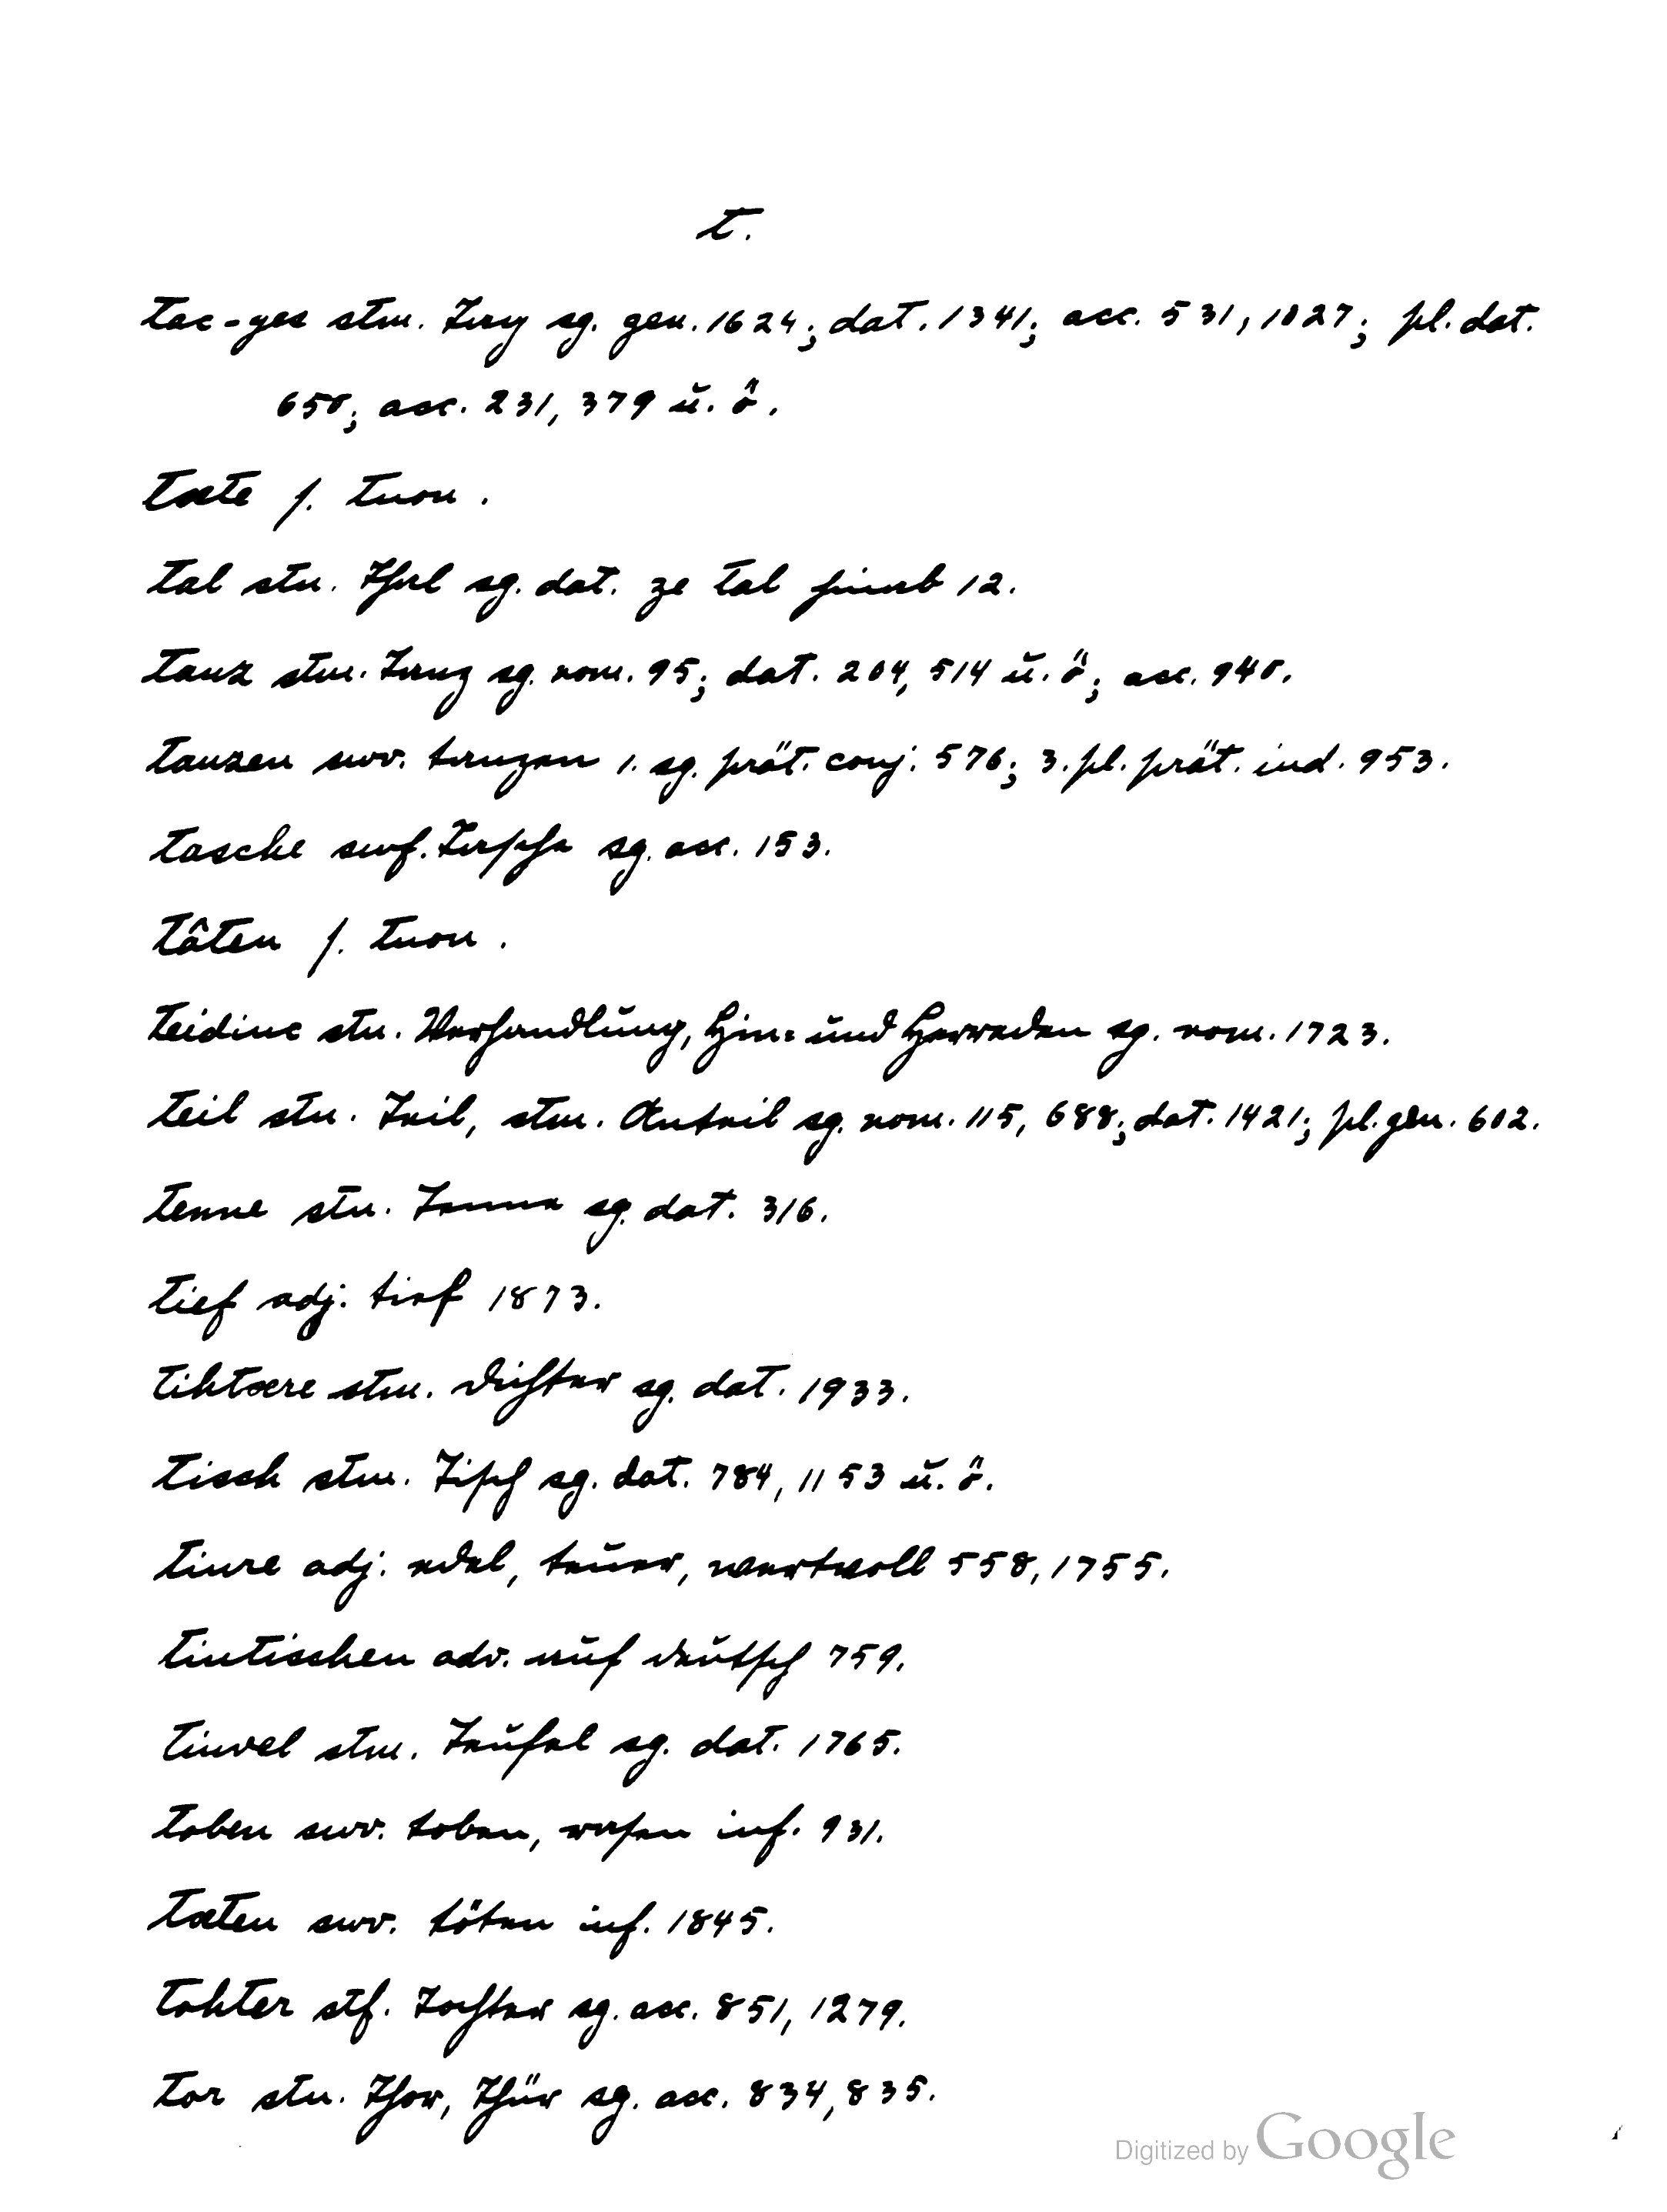 t.
tac-ges stm. Tag sg. gen. 1624; dat. 1341; acc. 531, 1027; pl. dat.
650; acc. 231, 379 u. ö.
tæte s. tuon.
tal stn. Thal sg. dat. ze tal hinab 12.
tanz stm. Tanz sg. nom. 95; dat. 204, 514 u. ö; acc. 940.
tanzen swv. tanzen 1. sg. prät. conj. 576; 3. pl. prät. ind. 953.
tasche swf. Tasche sg. acc. 153.
tâten s. tuon.
teidinc stn. Verhandlung, Hin- und Herreden sg. nom. 1723.
teil stn. Teil, stm. Anteil sg. nom. 115, 688; dat. 1421; pl. gen. 602.
tenne stn. Tenne sg. dat. 316.
tief adj. tief 1873.
tihtære stm. Dichter sg. dat. 1933.
tisch stm. Tisch sg. dat. 784, 1153 u. ö.
tiure adj. edel, teuer, wertvoll 558, 1755.
tiutischen adv. auf deutsch 759.
tiuvel stm. Teufel sg. dat. 1765.
toben swv. toben, rasen inf. 931.
tœten swv. töten inf. 1845.
tohter stf. Tochter sg. acc. 851, 1279.
tor stn. Thor, Thür sg. acc. 834, 835.
Digitized by Google